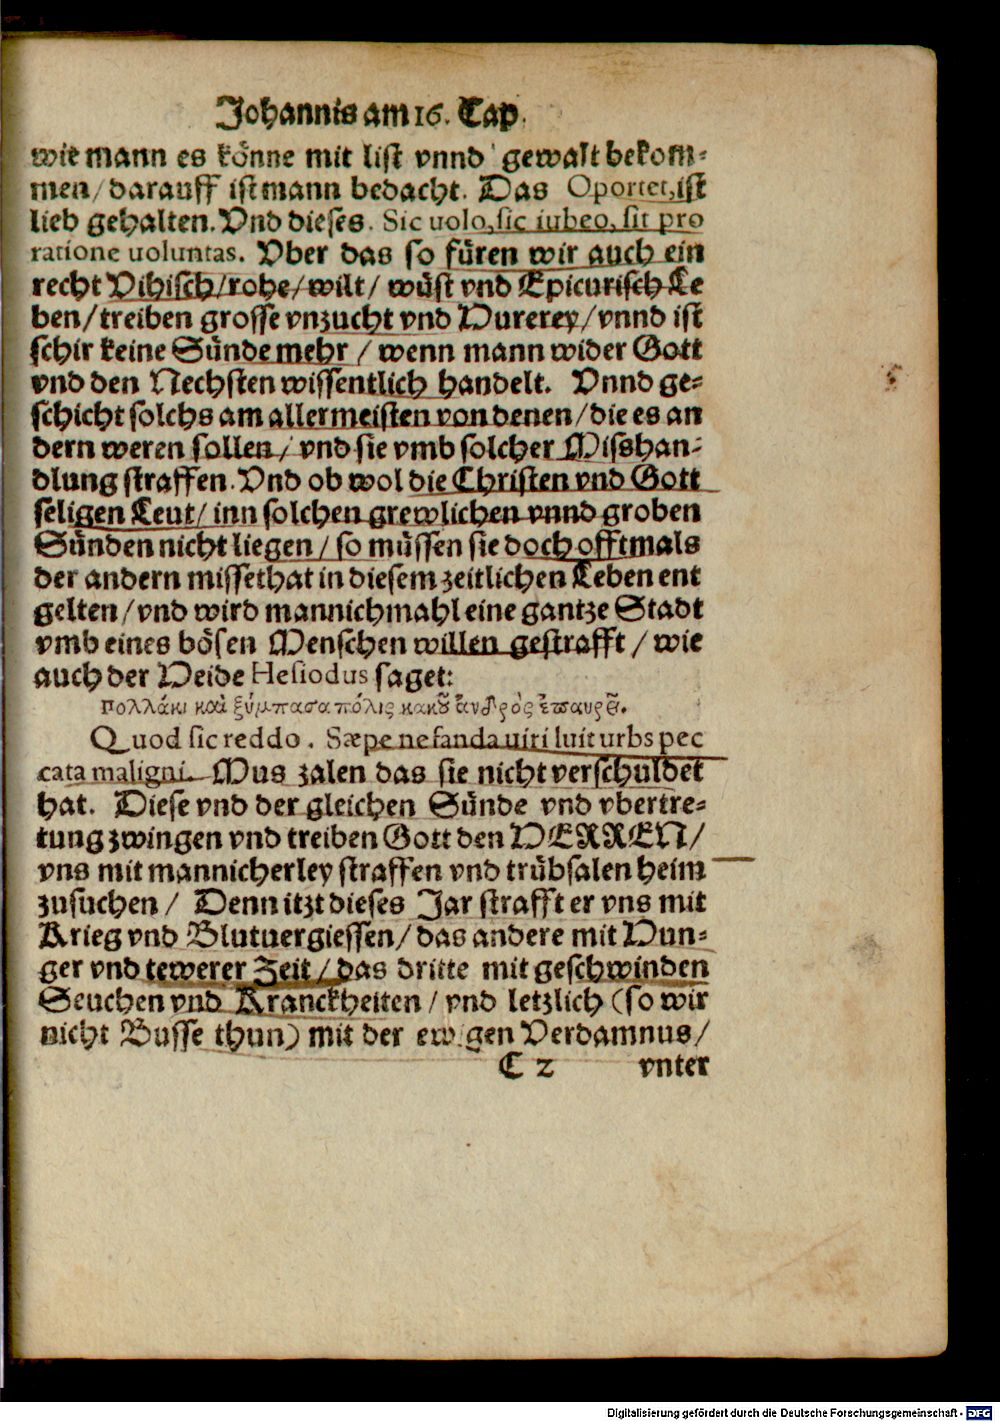 Johannis am 16. Cap.
wie mann es könne mit list vnnd gewalt bekom-
men/ darauff ist mann bedacht. Das Oportet, ist
lieb gehalten. Vnd dieses. Sic uolo, sic iubeo, sit pro
ratione uoluntas. Vber das so füren wir auch ein
recht Vihisch/ rohe/ wilt/ wüst vnd Epicurisch Le
ben/ treiben grosse vnzucht vnd Hurerey/ vnnd ist
schir keine Sünde mehr / wenn mann wider Gott
vnd den Nechsten wissentlich handelt. Vnnd ge-
schicht solchs am allermeisten von denen/ die es an
dern weren sollen/ vnd sie vmb solcher Misshan-
dlung straffen. Vnd ob wol die Christen vnd Gott
seligen Leut/ inn solchen grewlichen vnnd groben
Sünden nicht liegen/ so müssen sie doch offtmals
der andern missethat in diesem zeitlichen Leben ent
gelten/ vnd wird mannichmahl eine gantze Stadt
vmb eines bösen Menschen willen gestrafft / wie
auch der Heide Hesiodus saget:
πολλάκι καὶ ξύμπασα πόλις κακοῦ ἀνδρὸς ἐπαυρεῖ.
Quod sic reddo. Sæpe nefanda uiri luit urbs pec
cata maligni. Mus zalen das sie nicht verschuldet
hat. Diese vnd der gleichen Sünde vnd vbertre-
tung zwingen vnd treiben Gott den HERREN/
vns mit mannicherley straffen vnd trübsalen heim
zusuchen/ Denn itzt dieses Jar strafft er vns mit
Krieg vnd Blutuergiessen/ das andere mit Hun-
ger vnd tewerer Zeit/ das dritte mit geschwinden
Seuchen vnd Kranckheiten/ vnd letzlich (so wir
nicht Busse thun) mit der ewigen Verdamnus/
C 2 vnter
Digitalisierung gefördert durch die Deutsche Forschungsgemeinschaft - DFG